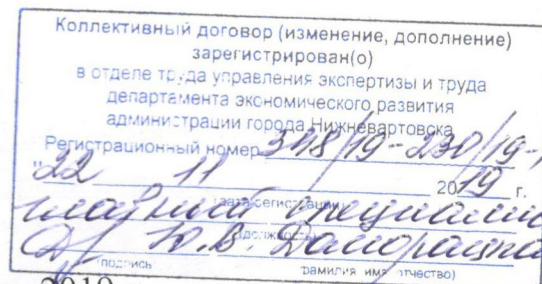 Коллективный договор (изменение, дополнение)
зарегистрирован(о)
в отделе труда управления экспертизы и труда
департамента экономического развития
администрации города Нижневартовска
Регистрационный номер 348/19-230/19-1
"22 11 2019 г.
(дата регистрации)
главный специалис
(должность)
Ю.В.
(подпись фамилия имя отчество)
2019